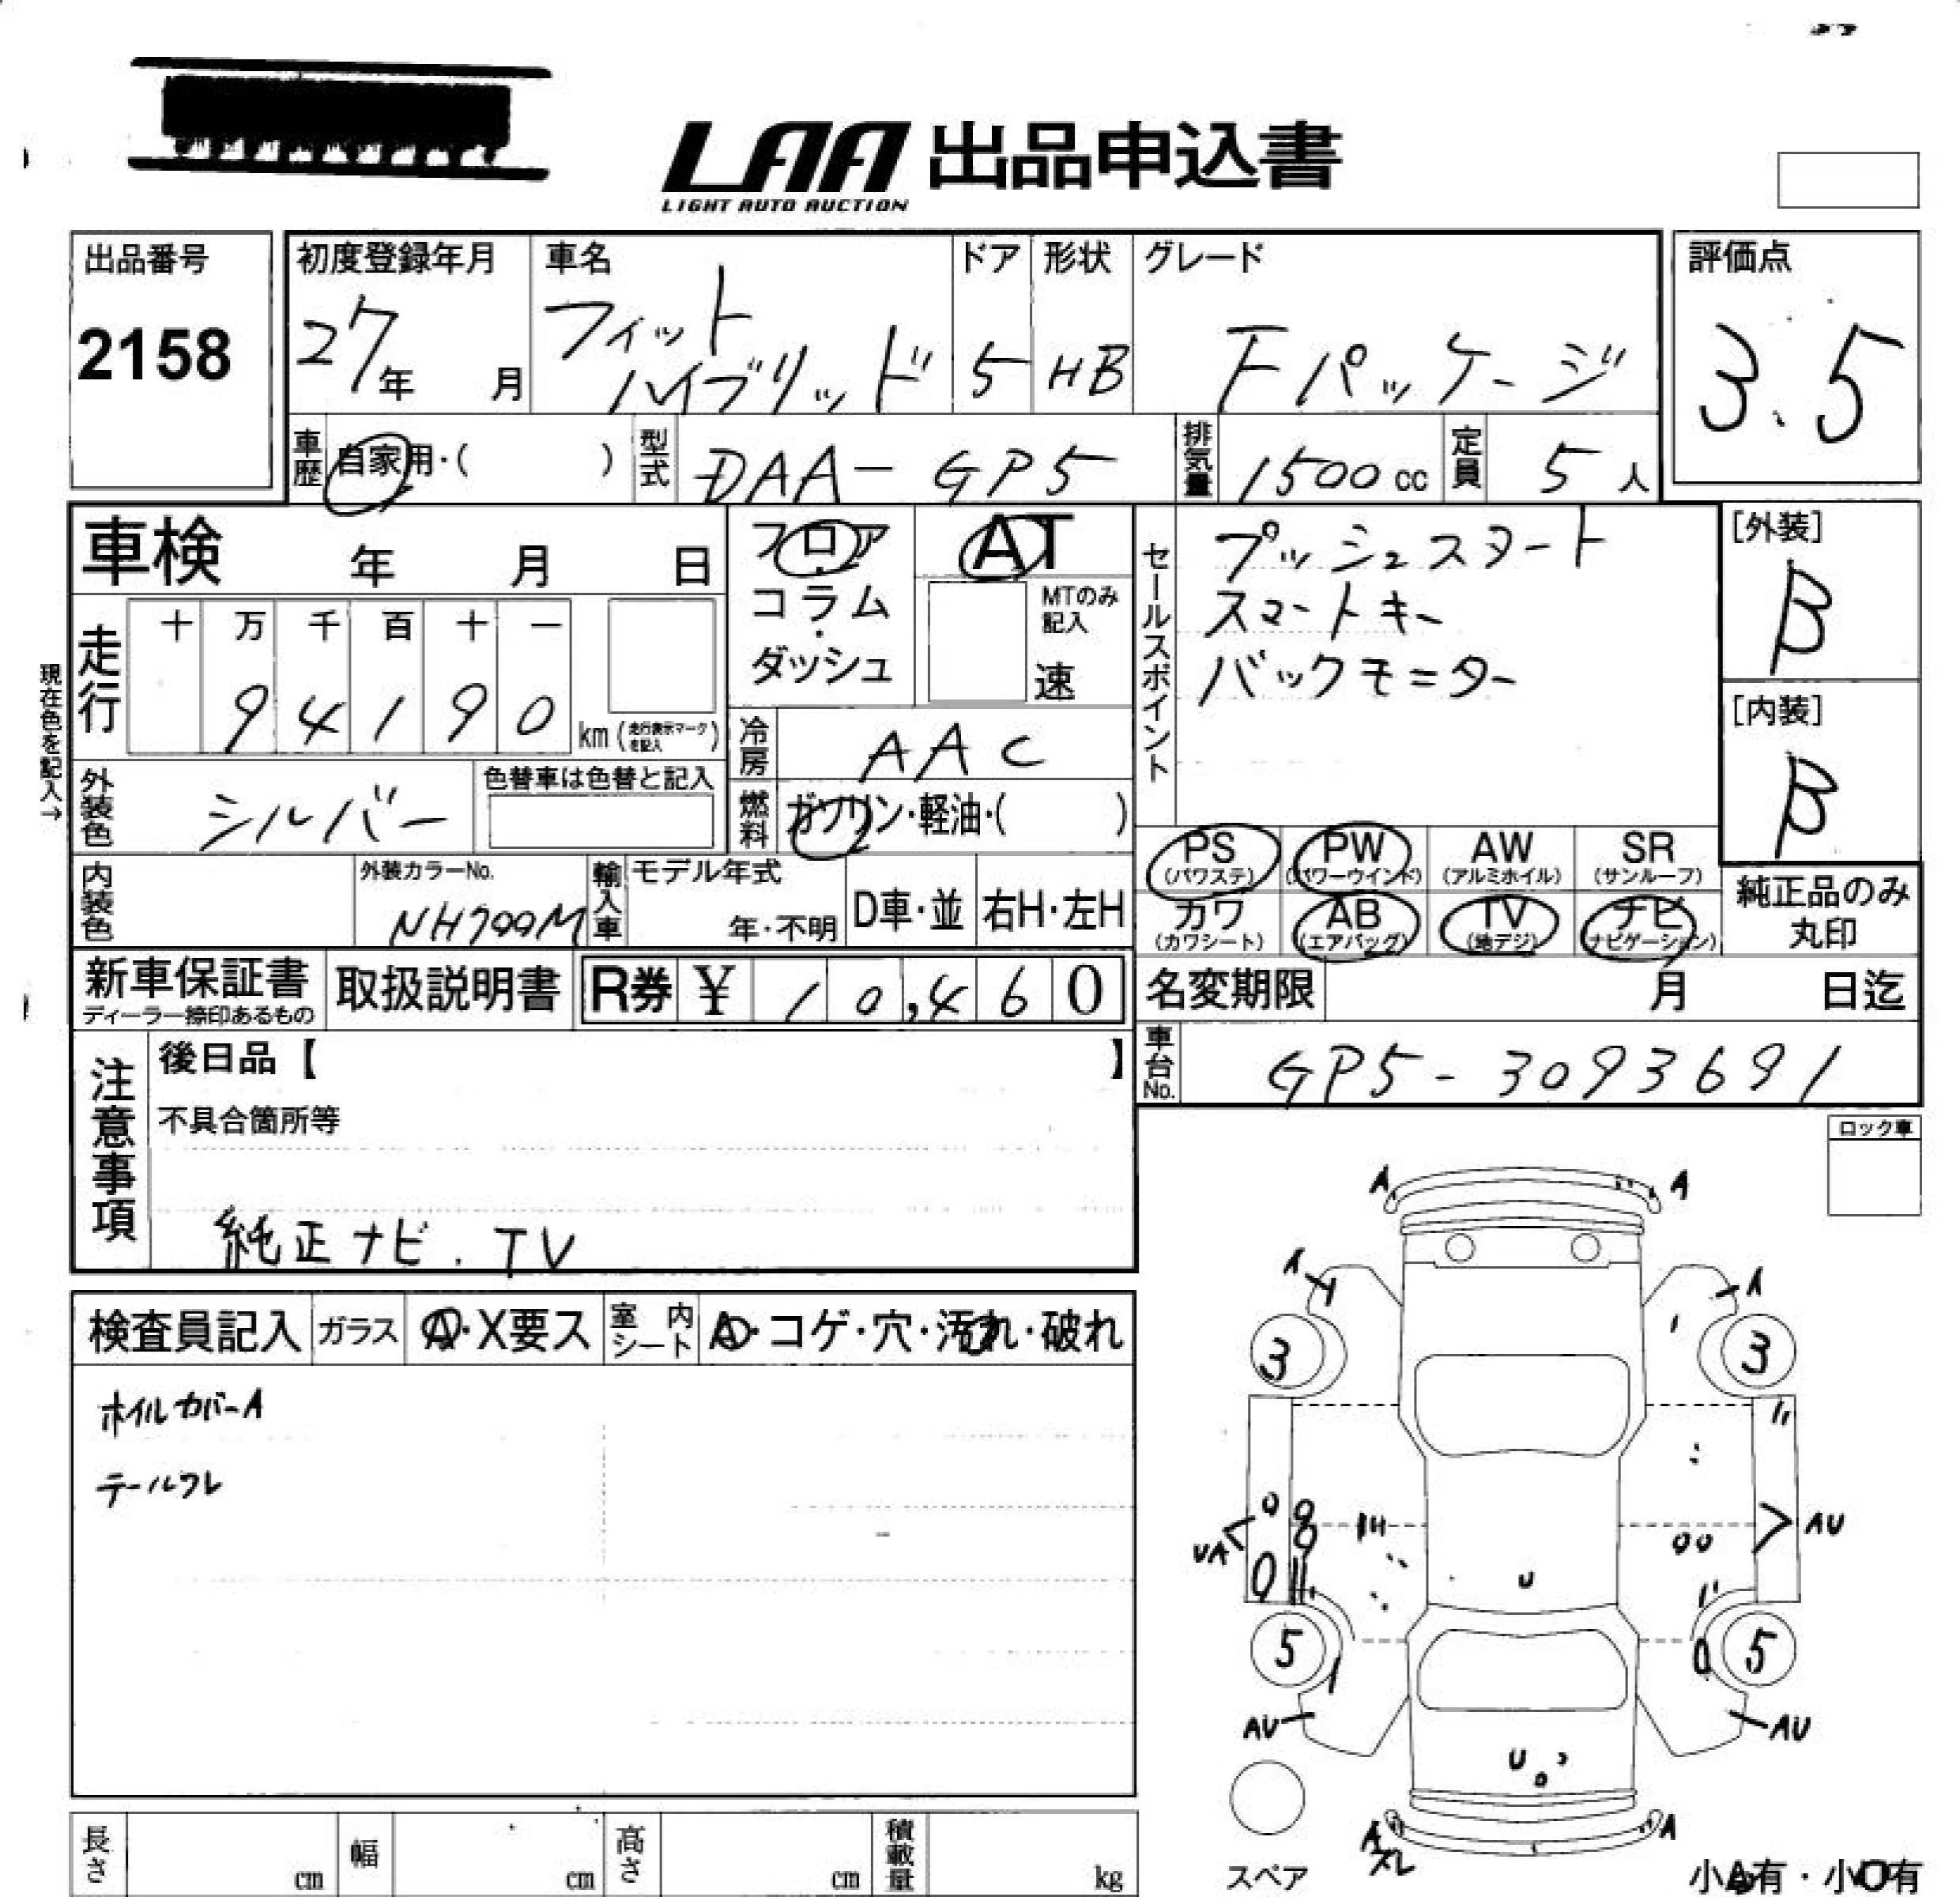 LAA 出品申込書
LIGHT AUTO AUCTION
出品番号
2158
初度登録年月
27年 月
車名
フィット
ハイブリッド
ドア
5
形状
HB
グレード
Fパッケージ
評価点
3.5
車歴
自家用・( )
型式
DAA-GP5
排気量
1500 cc
定員
5 人
車検 年 月 日
フロア
・
コラム
・
ダッシュ
AT
MTのみ
記入
速
セールスポイント
プッシュスタート
スマートキー
バックモニター
[外装]
B
[内装]
B
現在色を記入→
走行
十 万 千 百 十 一
9 4 1 9 0
km (走行表示マークを記入)
冷房
AAC
外装色
シルバー
色替車は色替と記入
燃料
ガソリン・軽油・( )
PS
(パワステ)
PW
(パワーウインド)
AW
(アルミホイル)
SR
(サンルーフ)
カワ
(カワシート)
AB
(エアバッグ)
TV
(地デジ)
ナビ
(ナビゲーション)
純正品のみ
丸印
内装色
外装カラーNo.
NH700M
輸入車
モデル年式
年・不明
D車・並
右H・左H
新車保証書
ディーラー捺印あるもの
取扱説明書
R券 ¥ 10,460
名変期限 月 日迄
車台No.
GP5-3093691
注意事項
後日品【 】
不具合箇所等
純正ナビ.TV
ロック車
検査員記入
ガラス
A・X要ス
室内シート
A・コゲ・穴・汚れ・破れ
ホイルカバーA
テールワレ
A A
A A
3 3
UA AU
U
5 5
AU AU
U
A A
スペア
小A有・小O有
長さ cm
幅 cm
高さ cm
積載量 kg